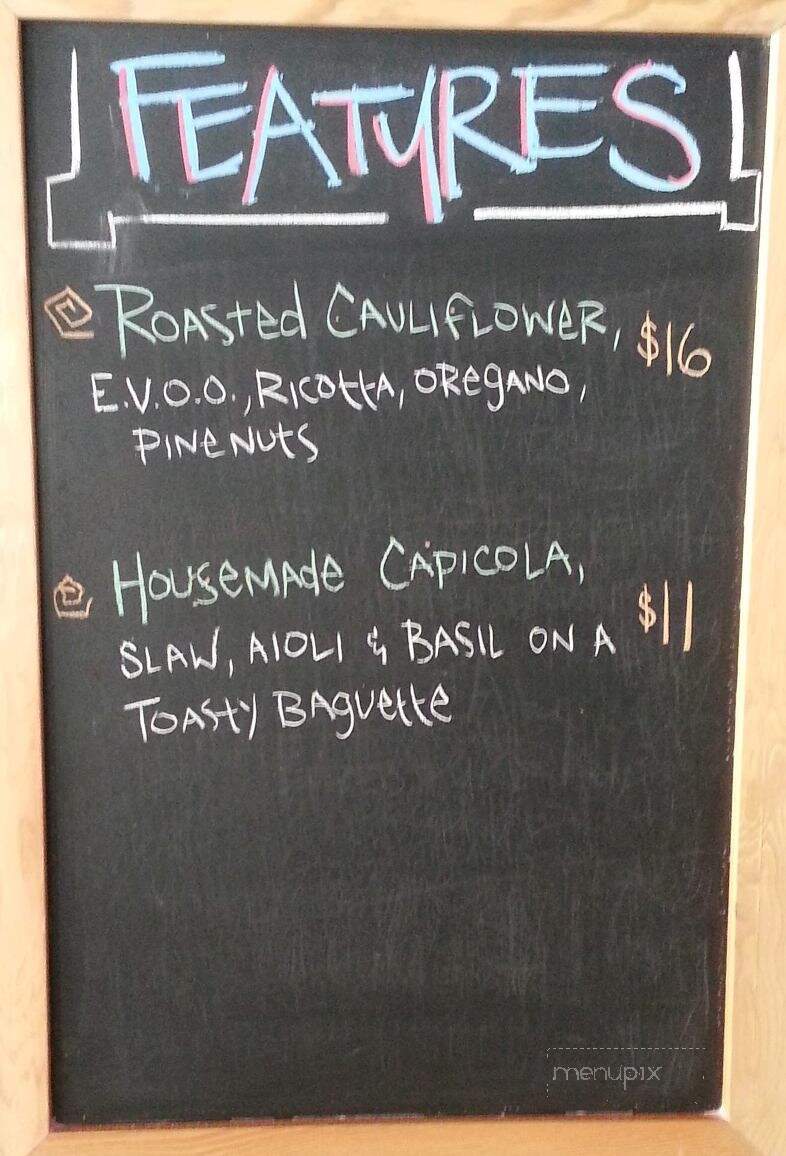 FEATURES
ROASTED CAULIFLOWER, $16
E.V.O.O., RICOTTA, OREGANO,
PINE NUTS
HOUSEMADE CAPICOLA,
$11
SLAW, AIOLI & BASIL ON A
TOASTY BAGUETTE
menupix